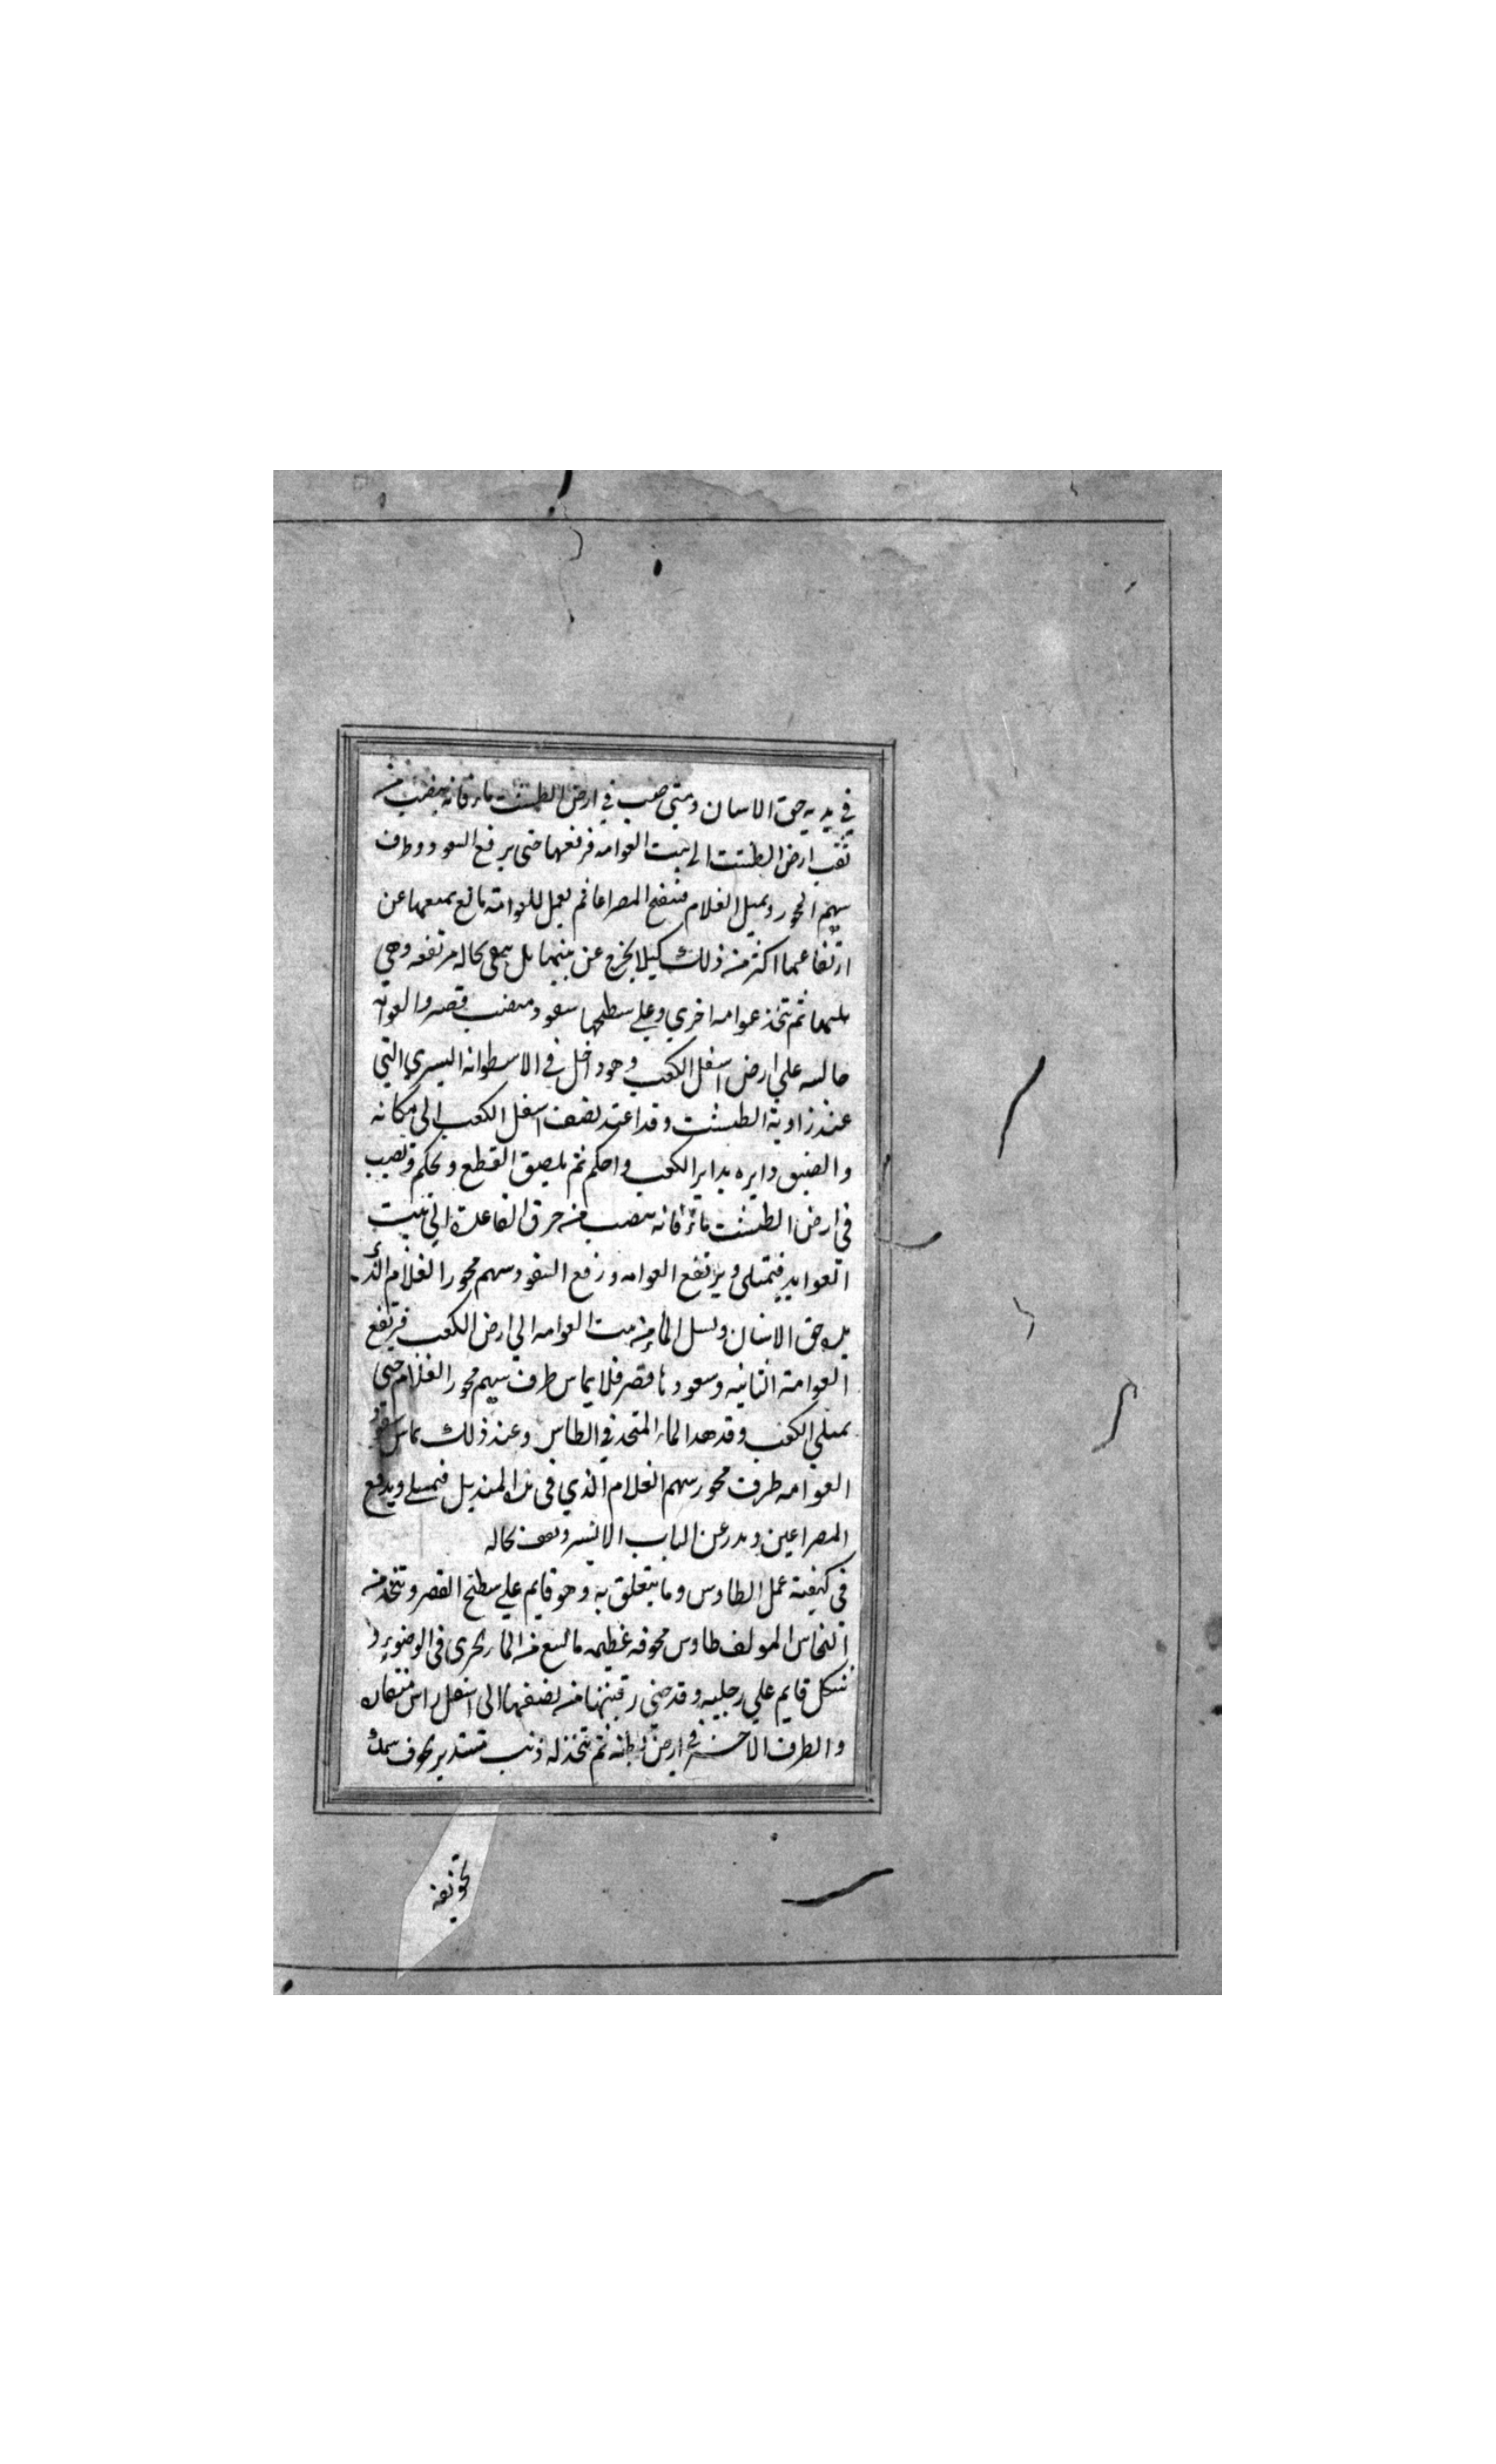 في يديه حق الاسنان ومتى صب في ارض الطشت ماء فانه ينصب منه
ثقب ارض الطشت الى بيت العوامه فرفعها حتى يرفع السفود وطرف
سهم المحور ويميل الغلام فينفتح المصراعا ثم يعمل للعوامة مانع يمنعها عن
ارتفاعها اكثر من ذلك كيلا يخرج عن بيتها بل يبقى بحاله مرتفعه وهي
ثم يتخذ عوامه اخري وعلي سطحها سفود منصب قصير والعوامه
جالسه علي ارض اسفل الكعب وهو داخل في الاسطوانه اليسري التي
عند زاوية الطشت وقد اعتد نصف اسفل الكعب الى مكانه
والصق دايره بداير الكعب واحكم ثم يلصق القطع ويحكم وتصب
في ارض الطشت ماء فانه ينصب من خرق القاعدة الي بيت
العوامه فيمتلي ويرتفع العوامه ورفع السفود سهم محور الغلام الذي
بيده حق الاسنان ويسل الماء من بيت العوامه الي ارض الكعب فرتفع
العوامة الثانيه وسفودها قصير فلا يماس طرف سهم محور الغلام حتى
يمتلي الكعب وقد هدا الماء المتحد في الطاس وعند ذلك يماس سفود
العوامه طرف محور سهم الغلام الذي في يده المنديل فيميل ويدفع
المصراعين ويدر عن الباب الايسر ويقف بحاله
في كيفية عمل الطاوس وما يتعلق به وهو قايم علي سطح القصر ويتخذ من
النحاس المولف طاوس مجوفه عظيمه ما يسع من الماء يجزى في الوضوء
شكل قايم علي رجليه وقد حنى رقبتها من نصفها الى اسفل راس منقاره
والطرف الاخر في ارض بطنه ثم يتخذ له ذنب مستدير مجوف سمك
تجويفه